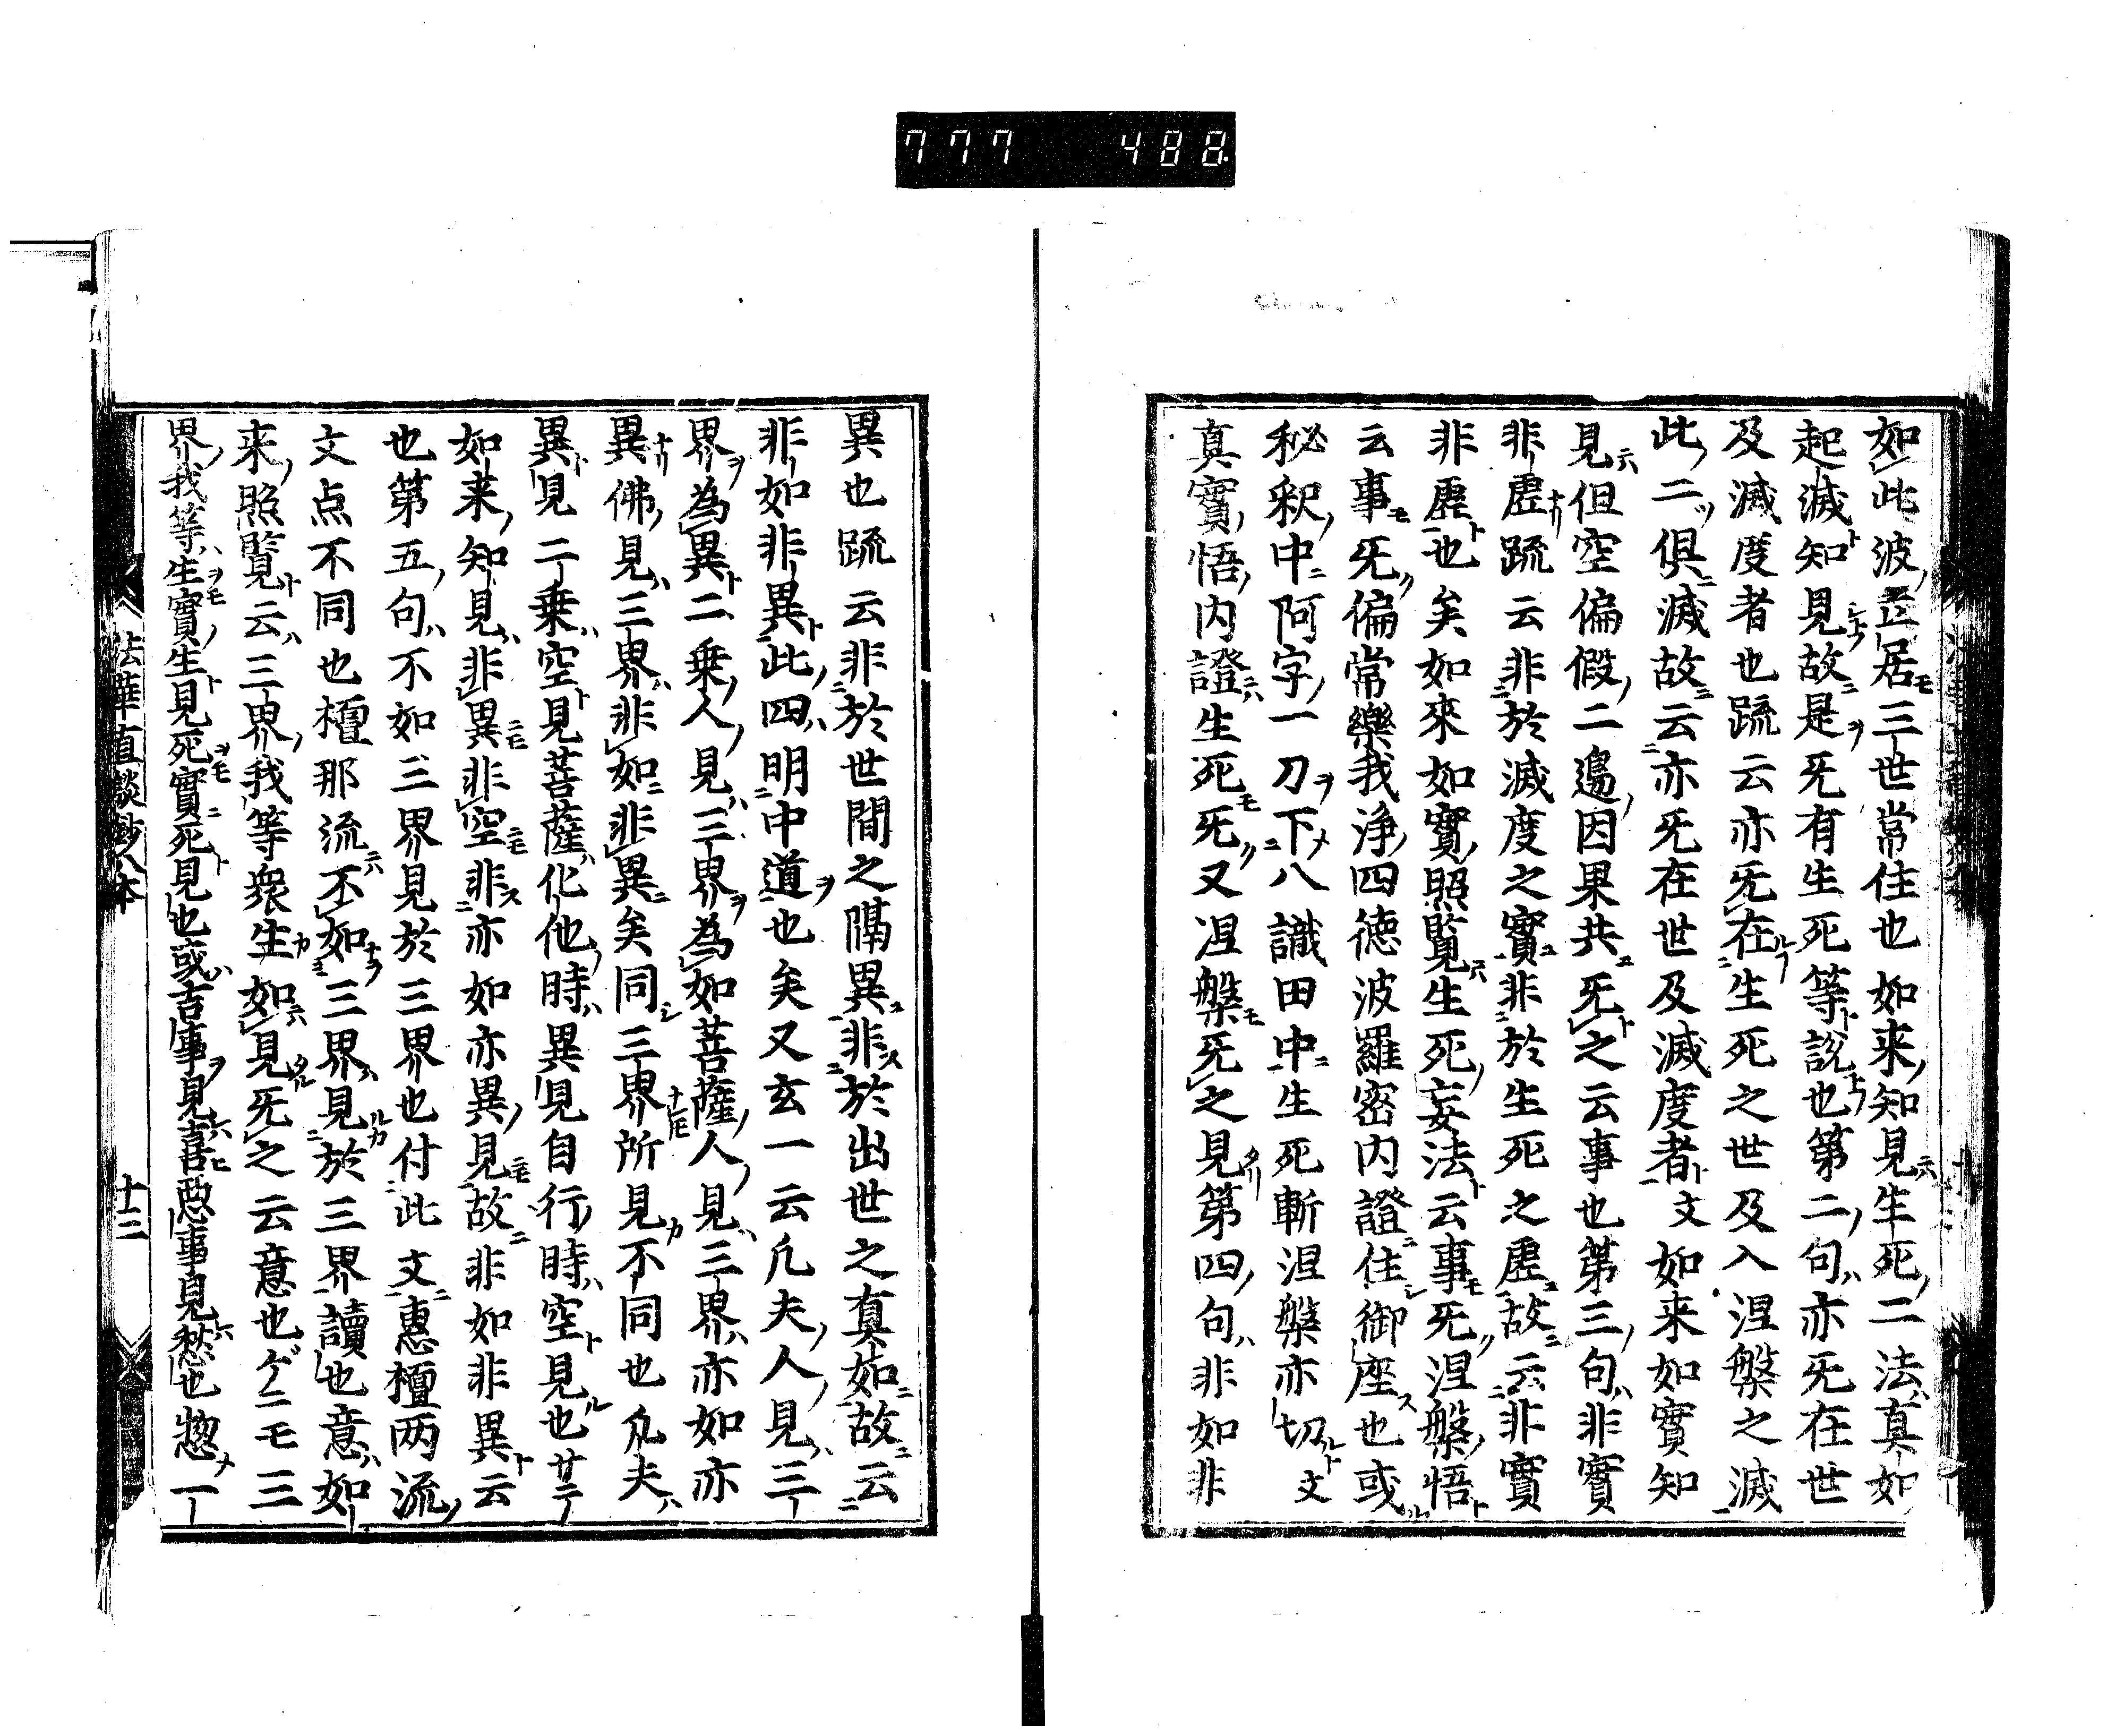 777 488
如此波立居三世常住也如来知見生死二法真如
起滅知見故是旡有生死等説也第二句亦旡在世
及滅度者也䟽云亦旡在生死之世及入涅槃之滅
此二俱滅故云亦旡在世及滅度者文如来如實知
見但空偏假二邊因果共旡之云事也第三句非實
非虚䟽云非於滅度之實非於生死之虚故云非實
非虚也矣如來如實照覧生死妄法云事死涅槃悟
云事旡偏常樂我浄四徳波羅密内證住御座也或
秘釈中阿字一刀下八識田中生死斬涅槃亦切文
真實悟内證生死旡又涅槃旡之見第四句非如非
異也䟽云非於世間之隔異非於出世之真如故云
非如非異此四明中道也矣又玄一云凢夫人見三
界為異二乗人見三界為如菩薩人見三界亦如亦
異佛見三界非如非異矣同三界所見不同也凢夫
異見二乗空見菩薩化他時異見自行時空見也サテ
如来知見非異非空非亦如亦異見故非如非異云
也第五句不如三界見於三界也付此文惠檀两流
文点不同也檀那流不如三界見於三界讀也意如
来照覧云三界我等衆生如見旡之云意也ゲニモ三
界我等生實生見死實死見也或吉事見喜惡事見愁也惣一
法華直談鈔八本 十二